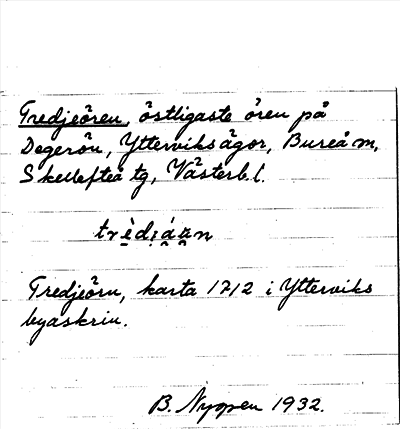 Tredjeören, östligaste ören på
Degerön, Ytterviksägor, Bureå m,
Skellefteå tg, Västerb. l.
Tredjeörn, karta 1712 i Ytterviks
byaskrin.
B. Nyopen 1932.